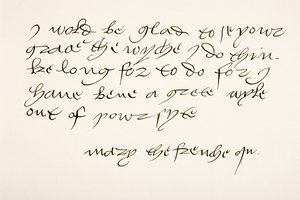 I wold be glad to se yowr
grace the wyche I do thin-
ke long for to do for I
have bene a grete wyle
out of yowr syte
mary the frenche qu.